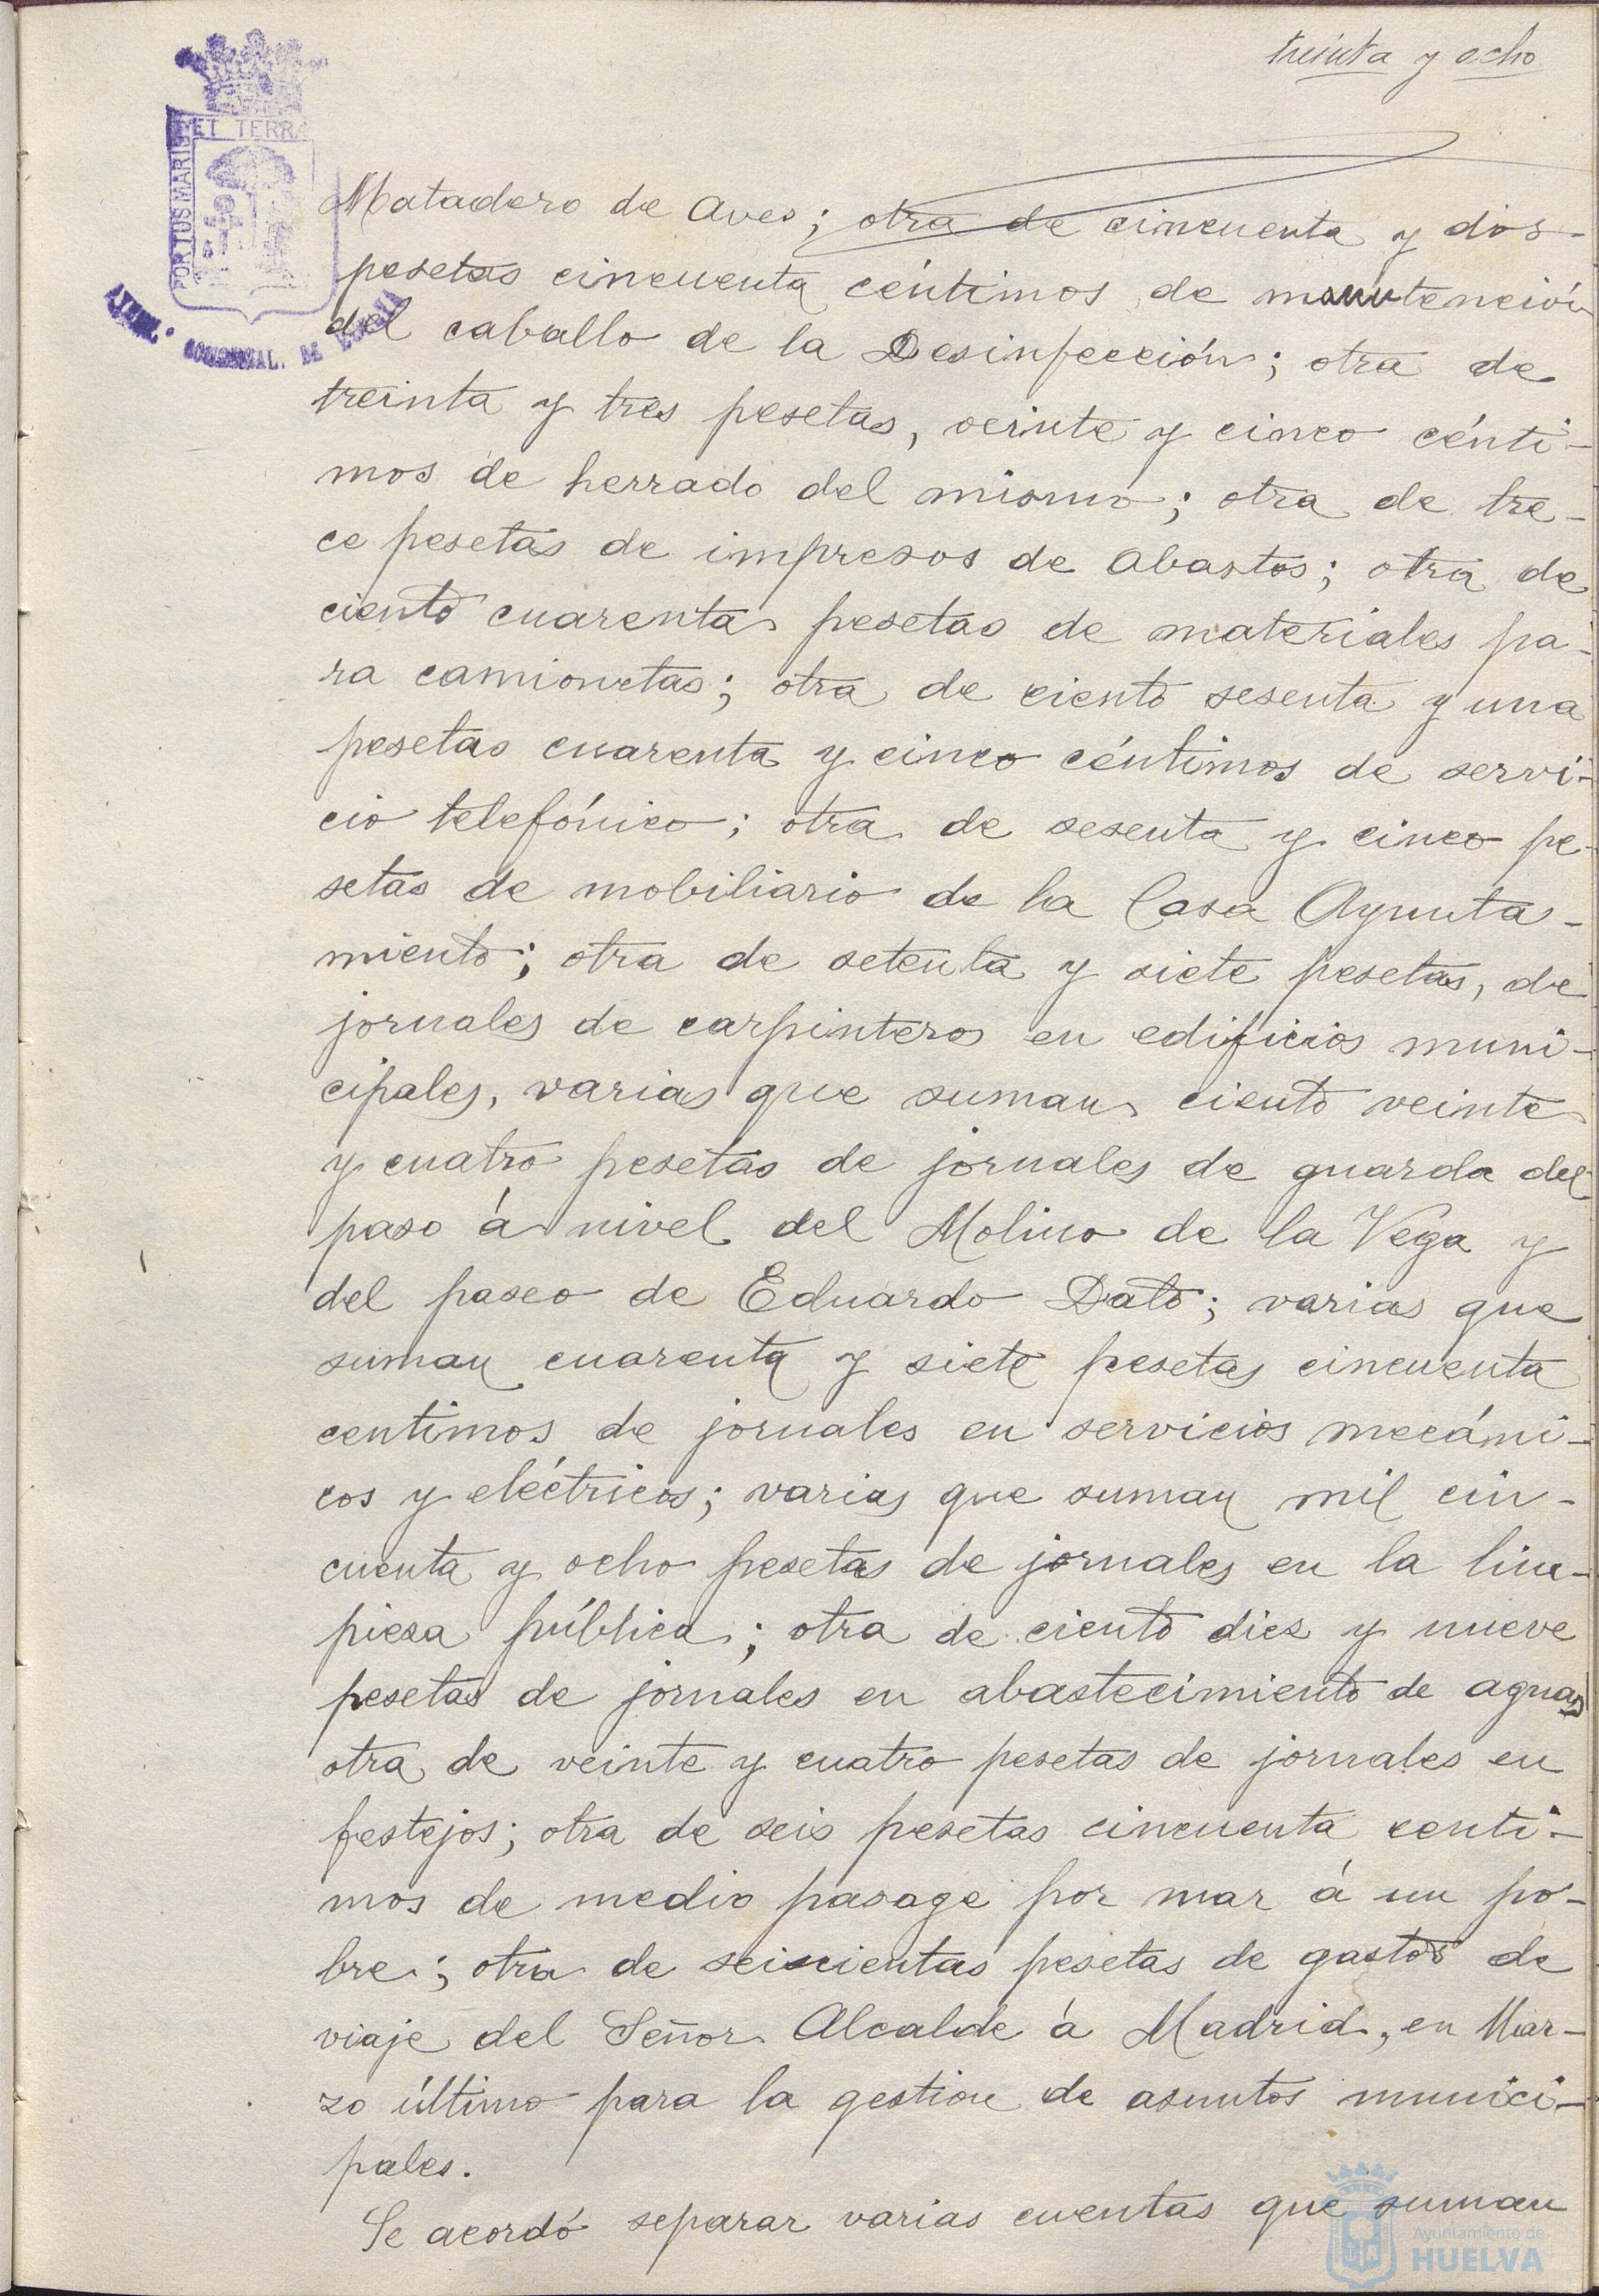 treinta y ocho
PORTUS MARIS ET TERRA
Matadero de Aves; otra de cincuenta y dos
pesetas cincuenta céntimos de manutención
del caballo de la Desinfección; otra de
treinta y tres pesetas, veinte y cinco cénti-
mos de herrado del mismo; otra de tre-
ce pesetas de impresos de Abastos; otra de
ciento cuarenta pesetas de materiales pa-
ra camionetas; otra de ciento sesenta y una
pesetas cuarenta y cinco céntimos de servi-
cio telefónico; otra de sesenta y cinco pe-
setas de mobiliario de la Casa Ayunta-
miento; otra de setenta y siete pesetas, de
jornales de carpinteros en edificios muni-
cipales, varias que suman ciento veinte
y cuatro pesetas de jornales de guarda del
paso á nivel del Molino de la Vega y
del paseo de Eduardo Dato; varias que
suman cuarenta y siete pesetas cincuenta
centimos de jornales en servicios mecáni-
cos y eléctricos; varias que suman mil cin-
cuenta y ocho pesetas de jornales en la lim-
pieza pública; otra de ciento diez y nueve
pesetas de jornales en abastecimiento de aguas
otra de veinte y cuatro pesetas de jornales en
festejos; otra de seis pesetas cincuenta centi-
mos de medio pasage por mar á un po-
bre; otra de seiscientas pesetas de gastos de
viaje del Señor Alcalde á Madrid, en Mar-
zo último para la gestion de asuntos munici-
pales.
Se acordó separar varias cuentas que suman
Ayuntamiento de
HUELVA